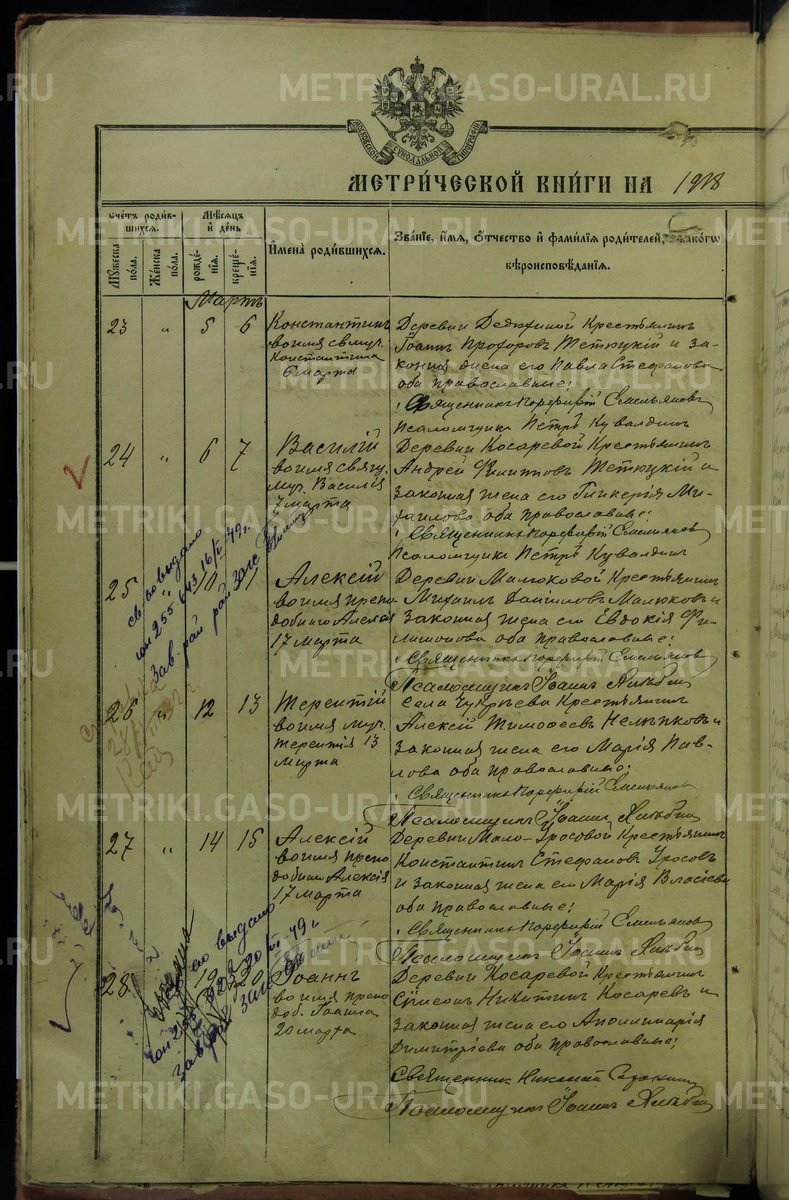 МЕТРИ́ЧЕСКОЙ КНИ́ГИ НА 1918
МОСКОВСКОЙ СѴНОДАЛЬНОЙ ТИПОГРАФІИ
Счетъ роди́вшихся.
Му́жеска по́ла.
Же́нска по́ла.
Мѣсяцъ и день
рожде́нія.
креще́нія.
Имена роди́вшихся.
Зва́нїе, и́мя, о́тчество и фами́лїя роди́телей, и како́гѡ вѣроисповѣ́данїя.
Мартъ
23 " 5 6
Константинъ
во имя св. муч.
Константина
6 марта
Деревни Дедюхиной Крестьянинъ
Іоаннъ Прохоровъ Тетюцкій и за-
конная жена его Павла Стефанова
оба православные;
Священникъ Порфирій Емельяновъ
Псаломщикъ Петръ Кувалдинъ
24 " 6 7
Василій
во имя свящ.
муч. Василія
7 марта
Деревни Косаревой Крестьянинъ
Андрей Тетюцкій и
законная жена его Гликерія Ми-
хаилова оба православные;
Священникъ Порфирій Емельяновъ
Псаломщикъ Петръ Кувалдинъ
25 " 10 11
Алексій
во имя препо
добнаго Алексія
17 марта
Деревни Малюковой Крестьянинъ
Михаилъ Даніиловъ Малюковъ и
законная жена его Евдокія Фи-
лимонова оба православные;
Священникъ Порфирій Емельяновъ
Псаломщикъ Іоаннъ
26 " 12 13
Терентій
во имя муч.
Терентія 13
марта
Села Чукреева Крестьянинъ
Алексій Тимофеевъ и
законная жена его Марія Пав-
лова оба православные;
Священникъ Порфирій Емельяновъ
Псаломщикъ Іоаннъ
27 " 14 15
Алексій
во имя препо
добнаго Алексія
17 марта
Деревни Мало-Уросовой Крестьянинъ
Константинъ Стефановъ Уросовъ
и законная жена его Марія Власіева
оба православные;
Священникъ Порфирій Емельяновъ
Псаломщикъ Іоаннъ
28 19 20
Іоаннъ
во имя препо
доб. Іоанна
20 марта
Деревни Косаревой Крестьянинъ
Симеонъ Никитинъ Косаревъ и
законная жена его Аполлинарія
Димитріева оба православные;
Священник Николай
Псаломщикъ Іоаннъ
св/во выдано
16/V 49 г.
Зав. рай ЗАГС
выдано
49 г.
METRIKI.GASO-URAL.RU